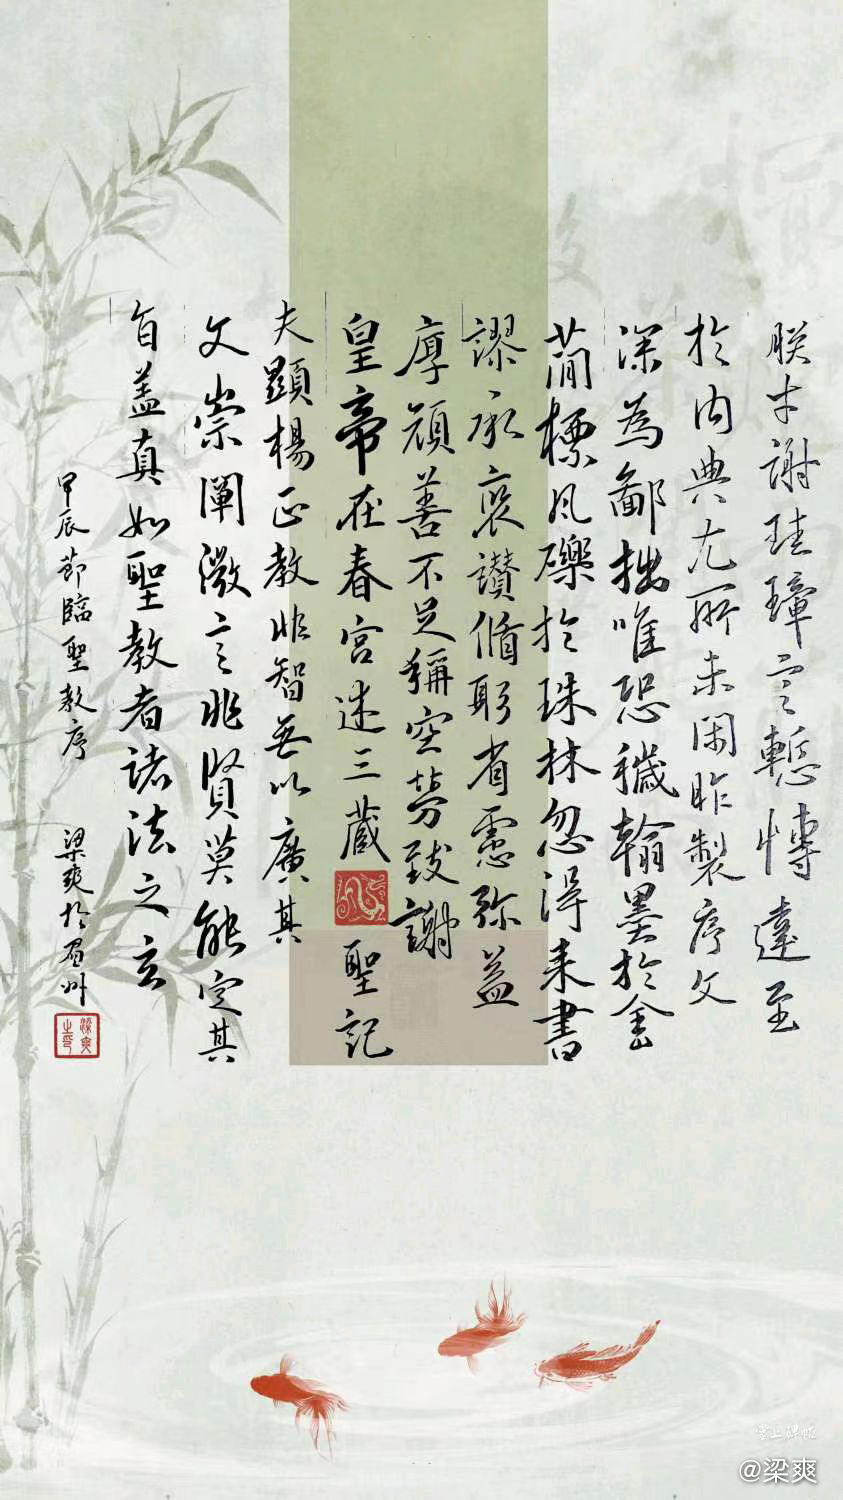 朕才謝珪璋言慙博達至
於内典尤所未閑昨製序文
深為鄙拙唯恐穢翰墨於金
蕳標瓦礫於珠林忽得来書
謬承褒讃循躬省慮弥益
厚顔善不足稱空勞致謝
皇帝在春宮述三藏聖記
夫顯楊正教非智無以廣其
文崇闡微言非賢莫能定其
旨盖真如聖教者諸法之玄
甲辰節臨聖教序
梁爽於眉州
梁爽之印
雲上碑帖
@梁爽